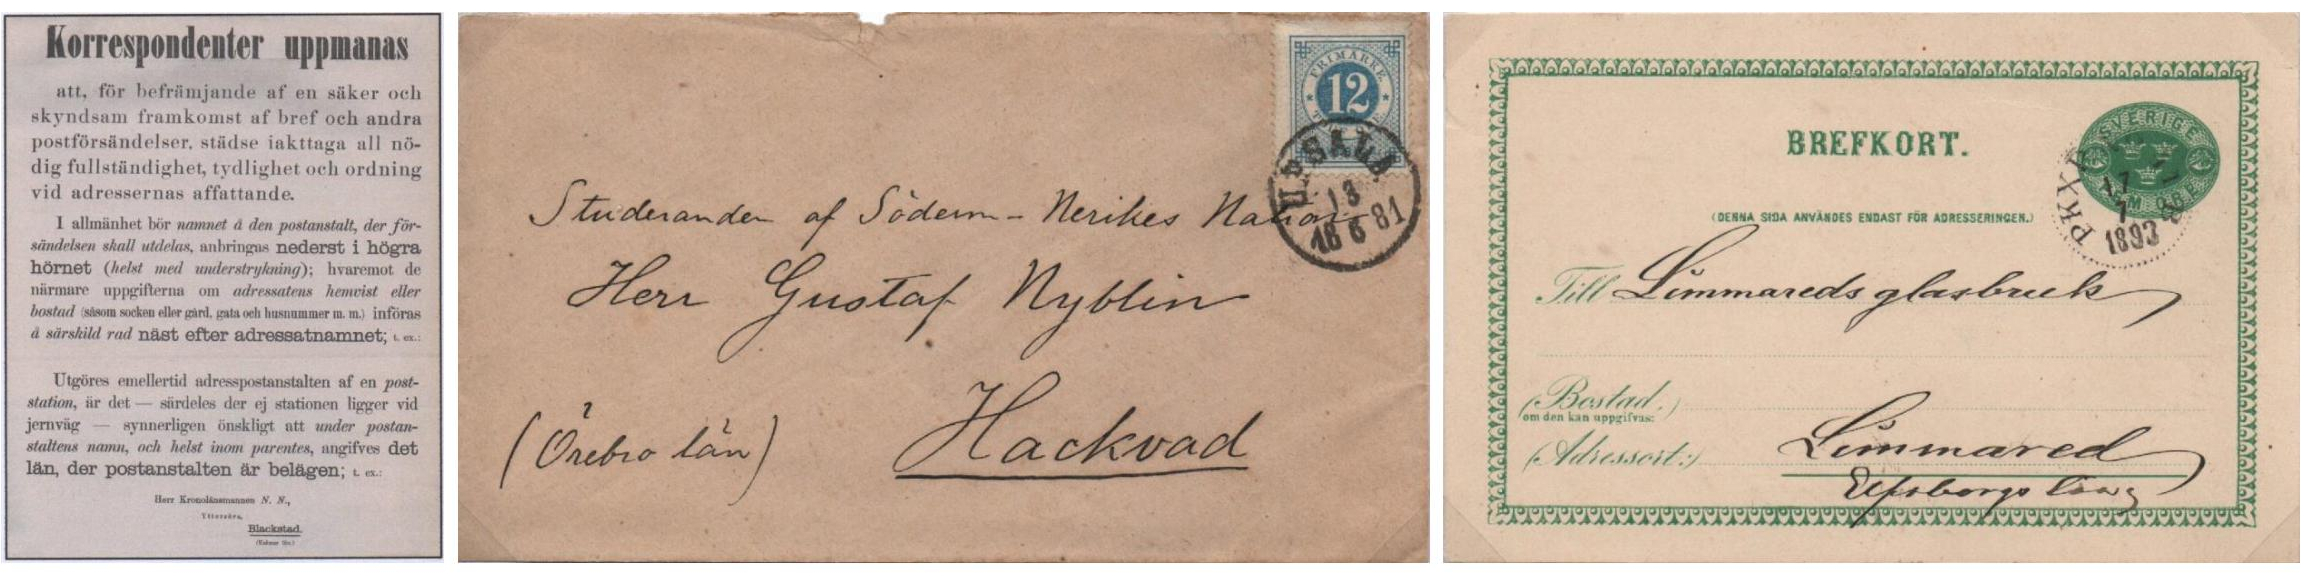 Korrespondenter uppmanas
att, för befrämjande af en säker och
skyndsam framkomst af bref och andra
postförsändelser, städse iakttaga all nö-
dig fullständighet, tydlighet och ordning
vid adressernas affattande.
I allmänhet bör namnet å den postanstalt, der för-
sändelsen skall utdelas, anbringas nederst i högra
hörnet (helst med understrykning); hvaremot de
närmare uppgifterna om adressatens hemvist eller
bostad (såsom socken eller gård, gata och husnummer m. m.) införas
å särskild rad näst efter adressatnamnet; t. ex.:
Utgöres emellertid adresspostanstalten af en post-
station, är det — särdeles der ej stationen ligger vid
jernväg — synnerligen önskligt att under postan-
staltens namn, och helst inom parentes, angifves det
län, der postanstalten är belägen; t. ex.:
Herr Kronolänsmannen N. N.,
Blackstad.
(Kalmar län.)
FRIMÄRKE
12
UPSALA
13
18 6 81
Studeranden af Södern-Nerikes Nation
Herr Gustaf Nyblin
Hackvad
(Örebro län)
BREFKORT.
SVERIGE
FEM ÖRE
(DENNA SIDA ANVÄNDES ENDAST FÖR ADRESSERINGEN.)
PKXP
17
7
1893
Till Limmareds glasbruk
(Bostad.)
om den kan uppgifvas:
(Adressort:) Limmared
Elfsborgs län